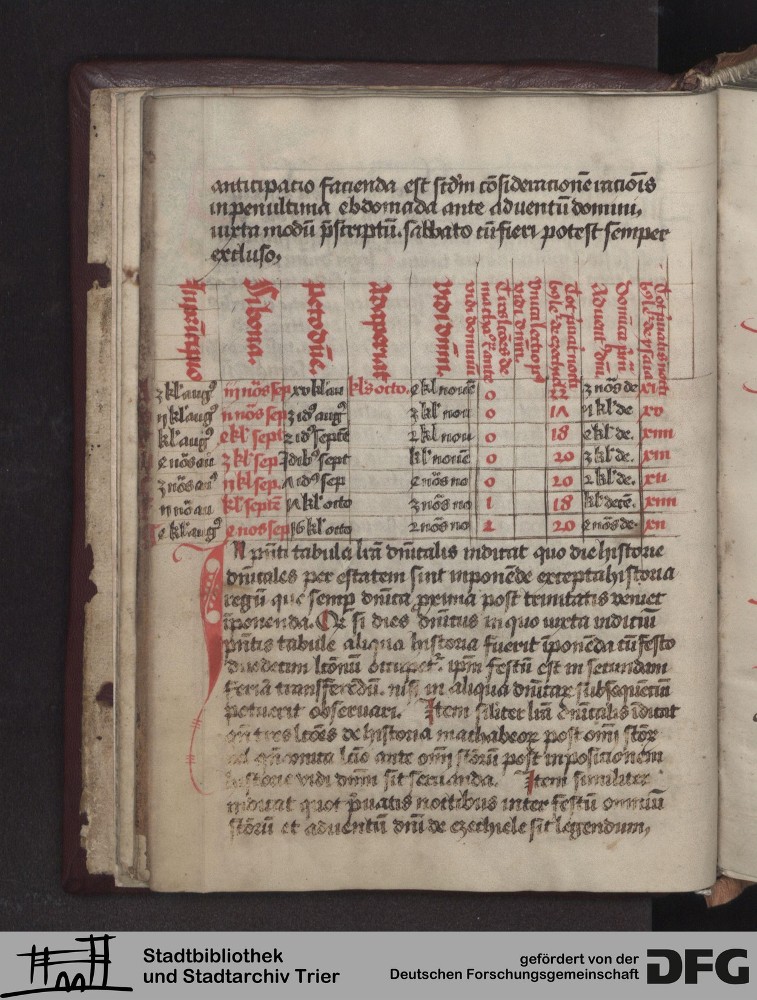 anticipacio facienda est scdm cōsideracionē raciōis
in penultima ebdomada ante adventū domini,
iuxta modū p̄scriptū. sabbato cū fieri potest semper
excluso,
In principio
Si bona.
Peto dñe.
Adaperiat
Vidi dñm.
Tres lcōes de
machab ante
vidi dominū
Dñica p̄m
Advent dñi
3 kl' augꝰ iii nōs sep xv kl' au kl's octo, e kl nouē 0 3 nōs de xvi
ii kl' augꝰ ii nōs sep 3 idꝰ augꝰ 3 kl' nou 0 1Λ ii kl' de xv
kl' augꝰ e kl' sept 2 idꝰ septē 2 kl nou 0 18 e kl' de. xiiii
e nōs au 3 kl' sep idibꝰ sept kl' nouē 0 20 3 kl' de. xiii
3 nōs auꝰ ii kl' sep. Λ idꝰ sep e nōs no 0 20 2 kl' de. xii
ii nō au kl' septē Λ kl' octo 3 nōs no 1 18 kl' decē. xiii
e kl' augꝰ e nos sep 16 kl' octo 2 nōs no 2 20 e nōs de. xii
In p̄nti tabula lrā dn̄icalis indicat quo die historie
dn̄icales per estatem sint inponēde excepta historia
regū que semp dn̄ica prima post trinitatis veniet
īponenda. Et si dies dn̄icus in quo iuxta indiciū
p̄ntis tabule aliqua historia fuerit īponēda cū festo
duodecim lcōnū occupet. ipm festū est in secundam
feriā transferēdū. nisi in aliqua dn̄icar subsequēciū
potuerit observari. Item siliter lrā dn̄icalis īdicat
an tres lcōes de historia machabeor post om̄i scōr
vel ante om̄i scōrū post inposicionem
historie vidi dn̄m sit seruanda. Item similiter
indicat quot p̄uatis noctibus inter festū omniū
scōrū et adventū dn̄i de ezechiele sit legendum,
Stadtbibliothek
und Stadtarchiv Trier
gefördert von der
Deutschen Forschungsgemeinschaft
DFG